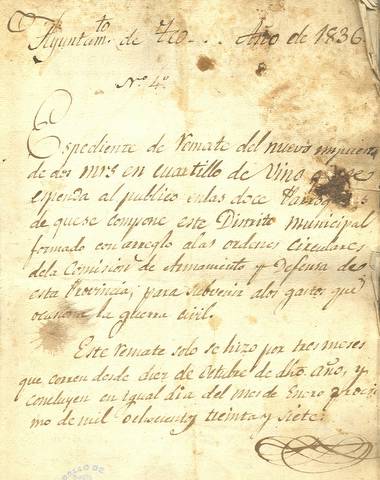 Ayuntamto. de Teo... Año de 1836
No. 4o.
Espediente de Remate del nuevo impuesto
de dos mrs en cuartillo de Vino q. se
espenda al publico en las doce Parroquias
de que se compone este Distrito Municipal
formado con arreglo alas ordenes circulares
dela Comision de Armamento y Defensa de
esta Provincia, para subvenir alos gastos que
ocasiona la guerra civil.
Este Remate solo se hizo por tres meses
que corren desde diez de Octubre de dho. año, y
concluyen en igual dia del mes de Enero procsi
mo de mil ochocientos treinta y siete.